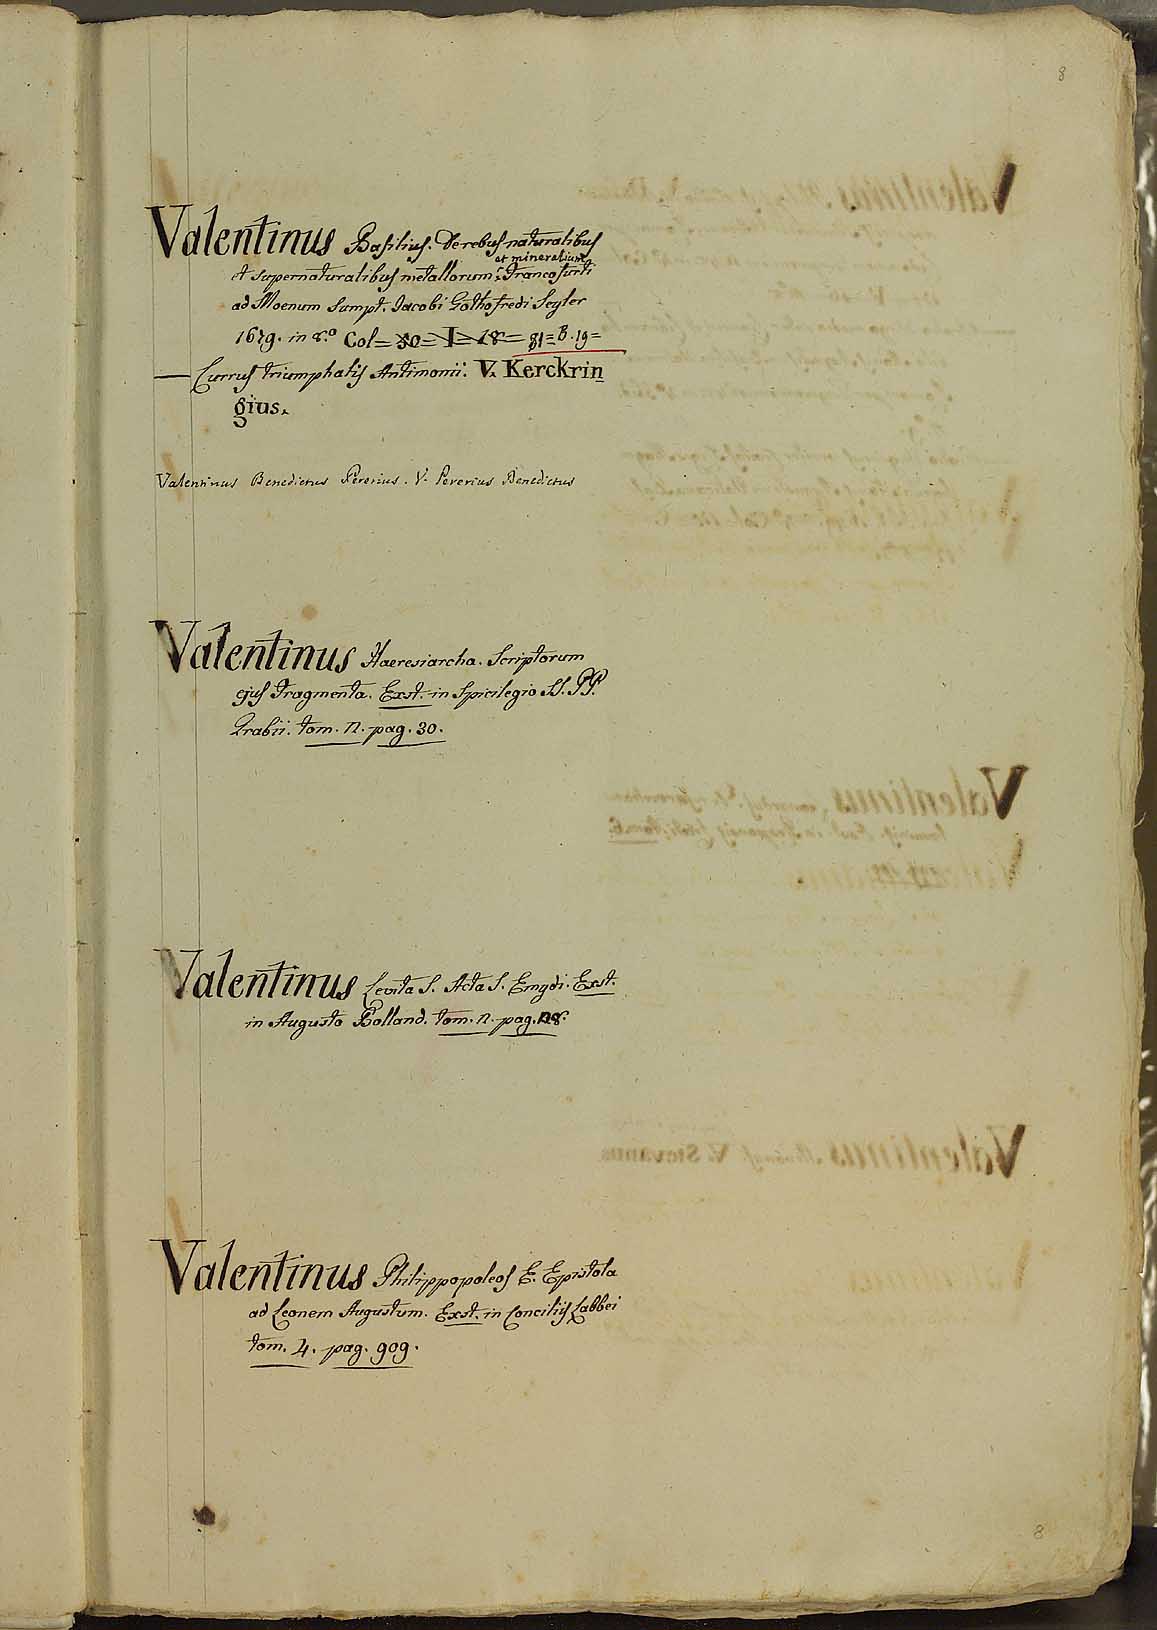 8
Valentinus Basilius. De rebus naturalibus
et supernaturalibus metallorum et mineralium. Francofurti
ad Moenum Sumpt. Jacobi Gothofredi Seyler
1679. in 8.º Col= 30= I= 18= 81= B. 19=
— Currus triumphalis Antimonii. V. Kerckrin
gius.
Valentinus Benedictus Pererius. V. Pererius Benedictus
Valentinus Haeresiarcha. Scriptorum
ejus fragmenta. Exst. in Spicilegio SS. PP.
Grabii. tom. 2. pag. 30.
Valentinus Levita S. Acta S. Emydi. Exst.
in Augusto Bolland. tom. 2. pag. 28.
Valentinus Philippopoleos E. Epistola
ad Leonem Augustum. Exst. in Conciliis Labbei
tom. 4. pag. 909.
8